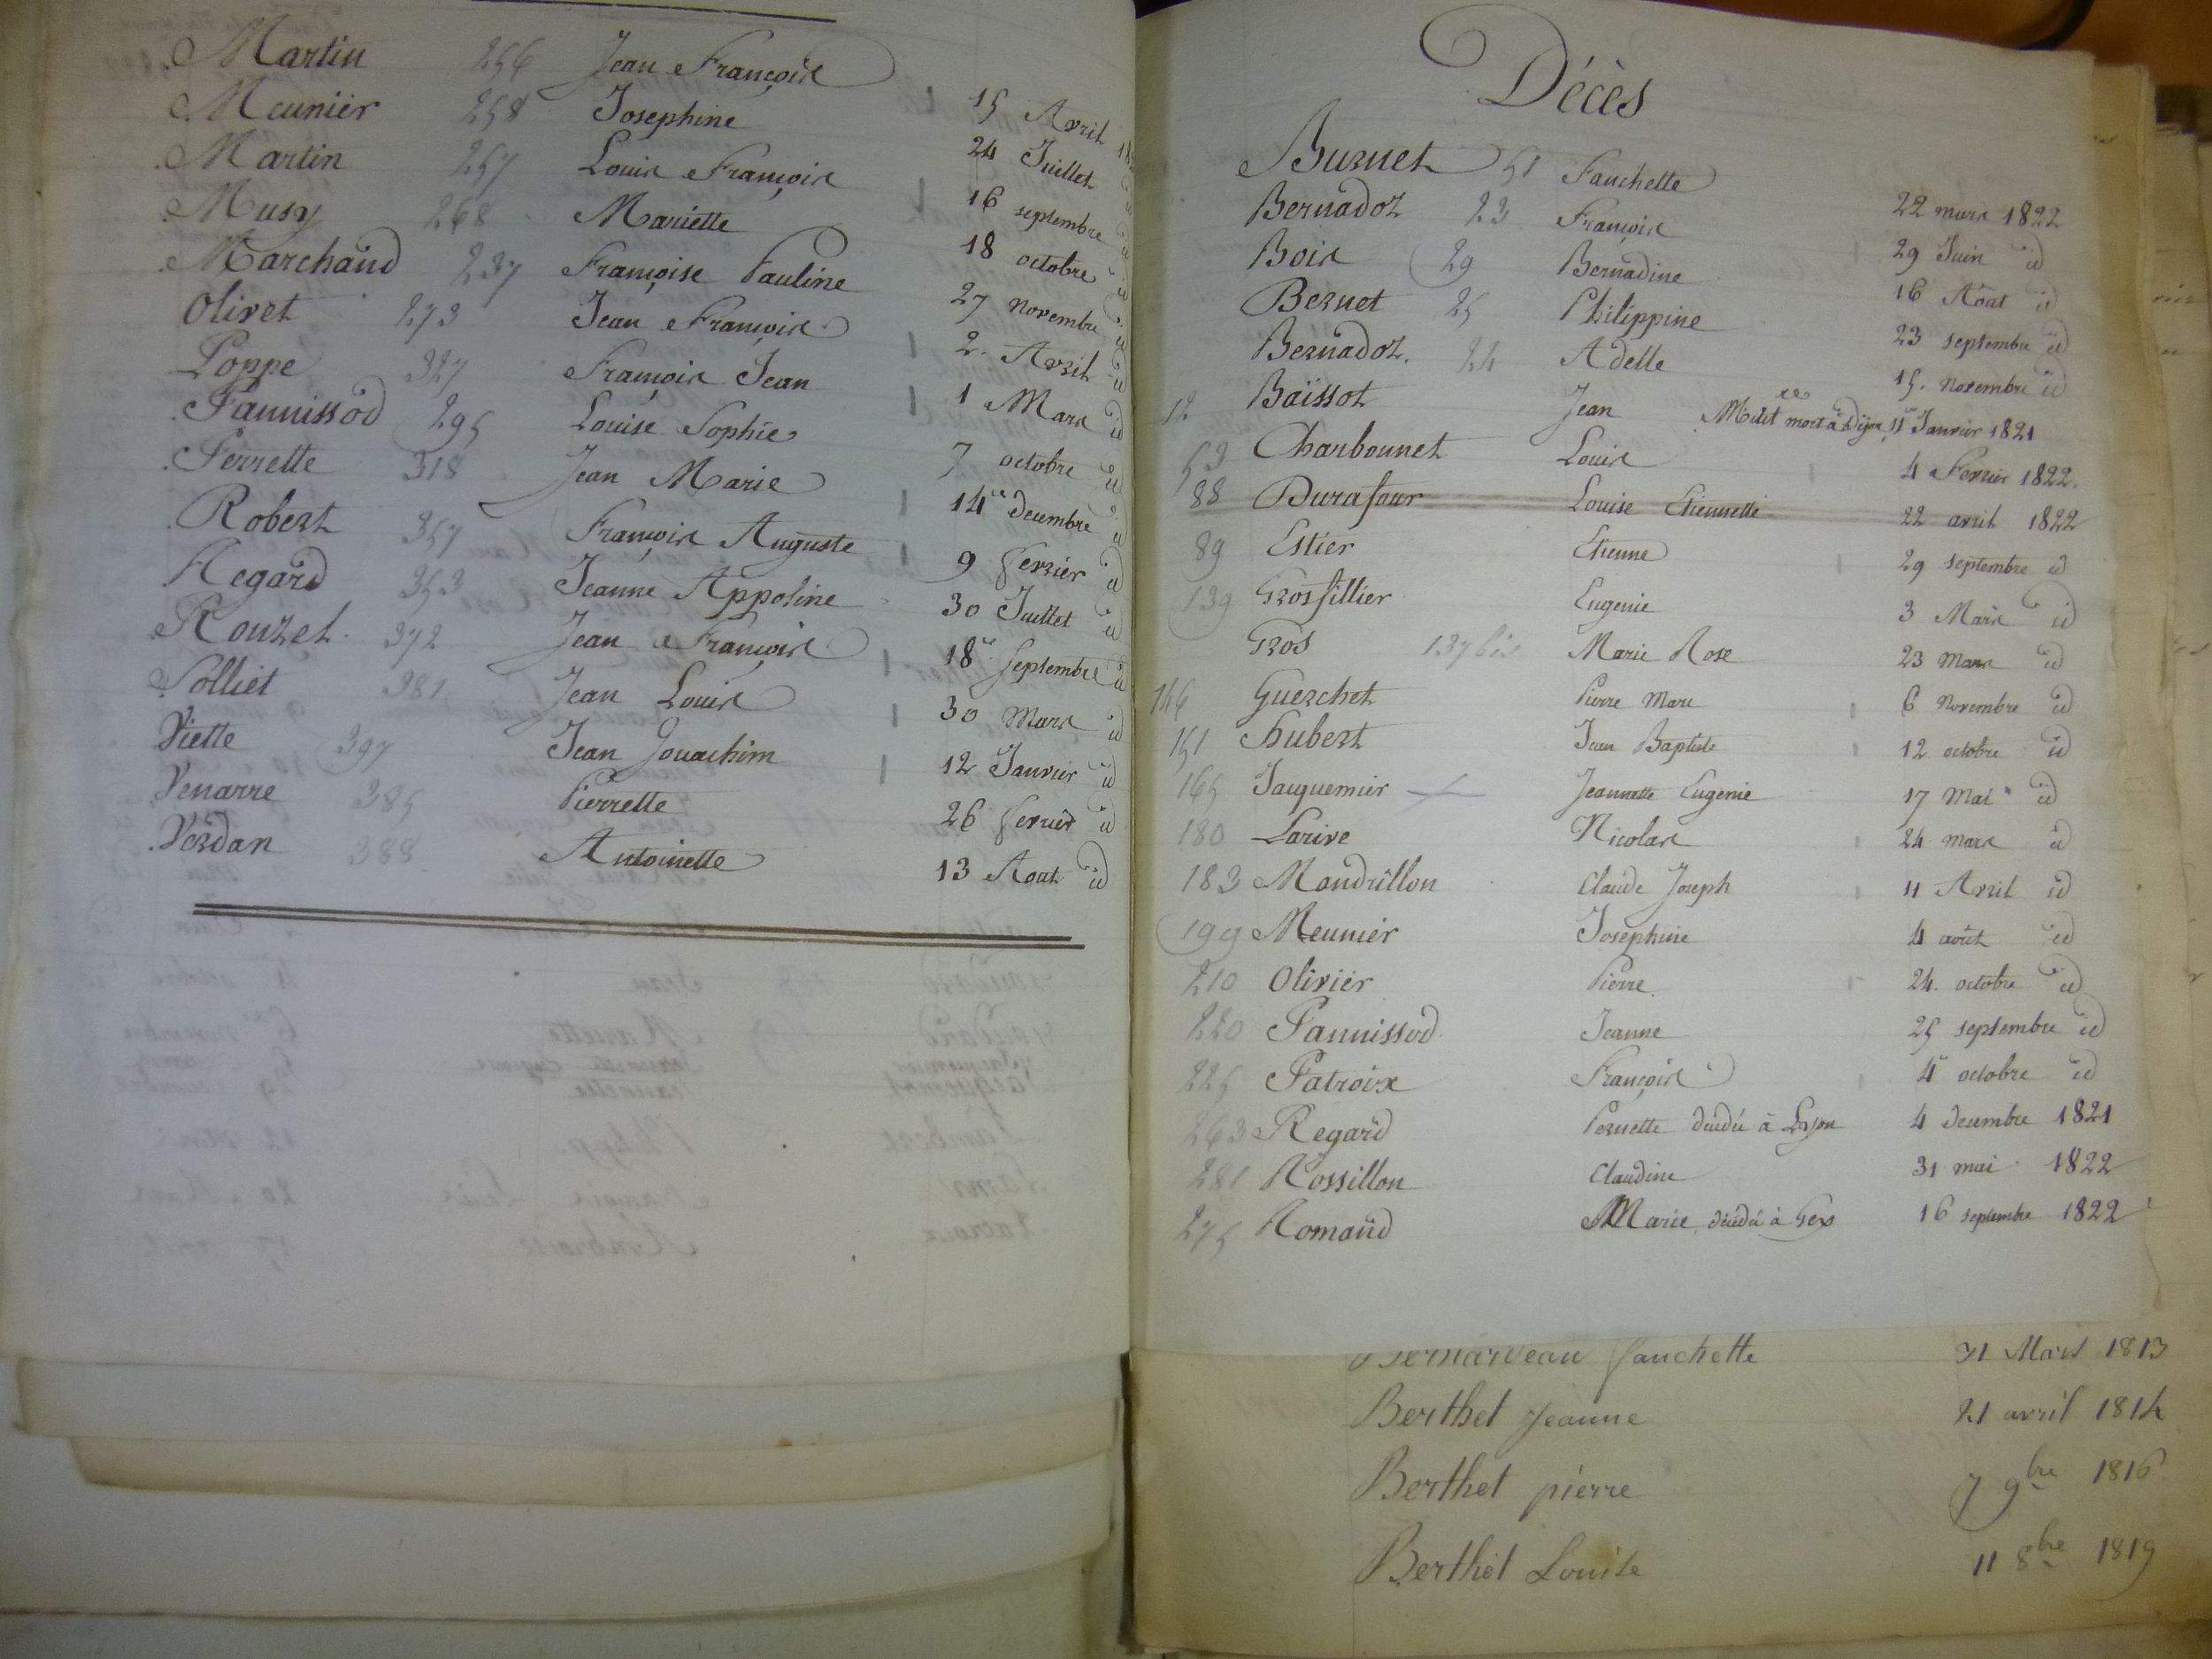 Martin 256 Jean François 15 Avril
Meunier 258 Josephine 24 Juillet
Martin 257 Louis François 16 septembre
Musy 268 Mariette 18 octobre id
Marchand 237 Françoise Pauline 27 novembre id
Olivet 273 Jean François 2. Avril id
Poppe 327 François Jean 1 Mars id
Pannissod 295 Louise Sophie 7 octobre id
Perrette 318 Jean Marie 14 decembre id
Robert 357 François Auguste 9 fevrier id
Regard 353 Jeanne Appoline 30 Juillet id
Rouzet 372 Jean François 18 septembre id
Solliet 381 Jean Louis 30 Mars id
Viette 397 Jean Jouachim 12 Janvier id
Venarre 385 Pierrette 26 fevrier id
Verdan 388 Antoinette 13 Aout id
Décès
Burnet 51 Fanchette 22 mars 1822
Bernadoz 23 François 29 Juin id
Bois 29 Bernadine 16 Aout id
Bernet 25 Philippine 23 septembre id
Bernadoz. 24 Adelle 15. novembre id
12 Baissot Jean Milit mort à Dijon 11 Janvier 1821
53 Charbonnet Louis 4 Fevrier 1822.
88 Durafour Louise Etiennette 22 avril 1822
89 Estier Etienne 29 septembre id
139 Grosfillier Eugenie 3 Mars id
Gros 137 bis Marie Rose 23 mars id
146 Guerchet Pierre Marie 6 novembre id
151 hubert Jean Baptiste 12 octobre id
165 Jaquemier Jeannette Eugenie 17 Mai id
180 Larive Nicolas 24 mars id
183 Mandrillon Claude Joseph 11 Avril id
199 Meunier Josephine 4 août id
210 Olivier Pierre 24. octobre id
220 Pannissod Jeanne 25 septembre id
225 Patroix François 4 octobre id
263 Regard Pernette décédé à Lyon 4 decembre 1821
281 Rossillon Claudine 31 mai 1822
275 Romand Marie décédé à Gex 16 septembre 1822
Bernardeau fanchette 31 Mars 1813
Berthet Jeanne 21 avril 1814
Berthet pierre 7 9bre 1816
Berthet Louise 11 8bre 1819